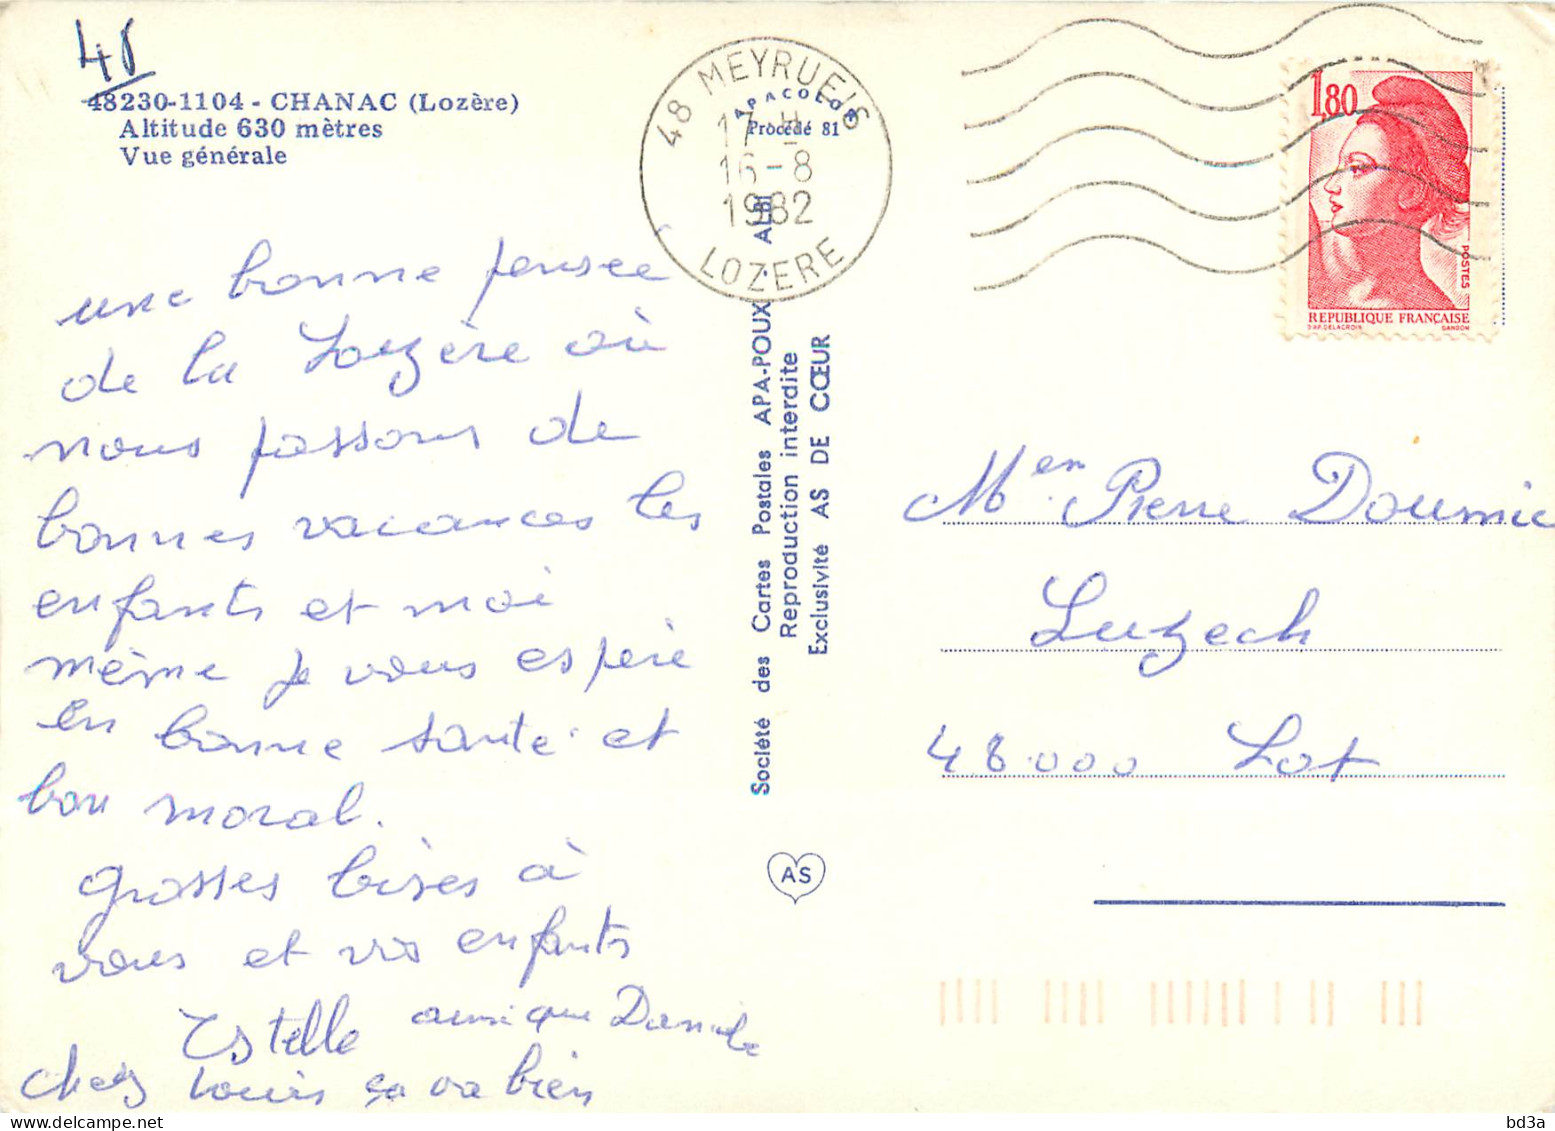 48
48230-1104 - CHANAC (Lozère)
Altitude 630 mètres
Vue générale
48 MEYRUEIS
17 H
16-8
1982
LOZERE
APACOLOR
Procédé 81
1,80
POSTES
REPUBLIQUE FRANÇAISE
D'AP. DELACROIX GANDON
une bonne pensée
de la Lozère où
nous passons de
bonnes vacances les
enfants et moi
même je vous espère
en bonne santé et
bon moral.
grosses bises à
vous et vos enfants
Estelle ainsi que Danièle
chez Louis ça va bien
Société des Cartes Postales APA-POUX - ALBI
Reproduction interdite
Exclusivité AS DE CŒUR
AS
Pierre Doumic
Luzech
48000 Lot
bd3a